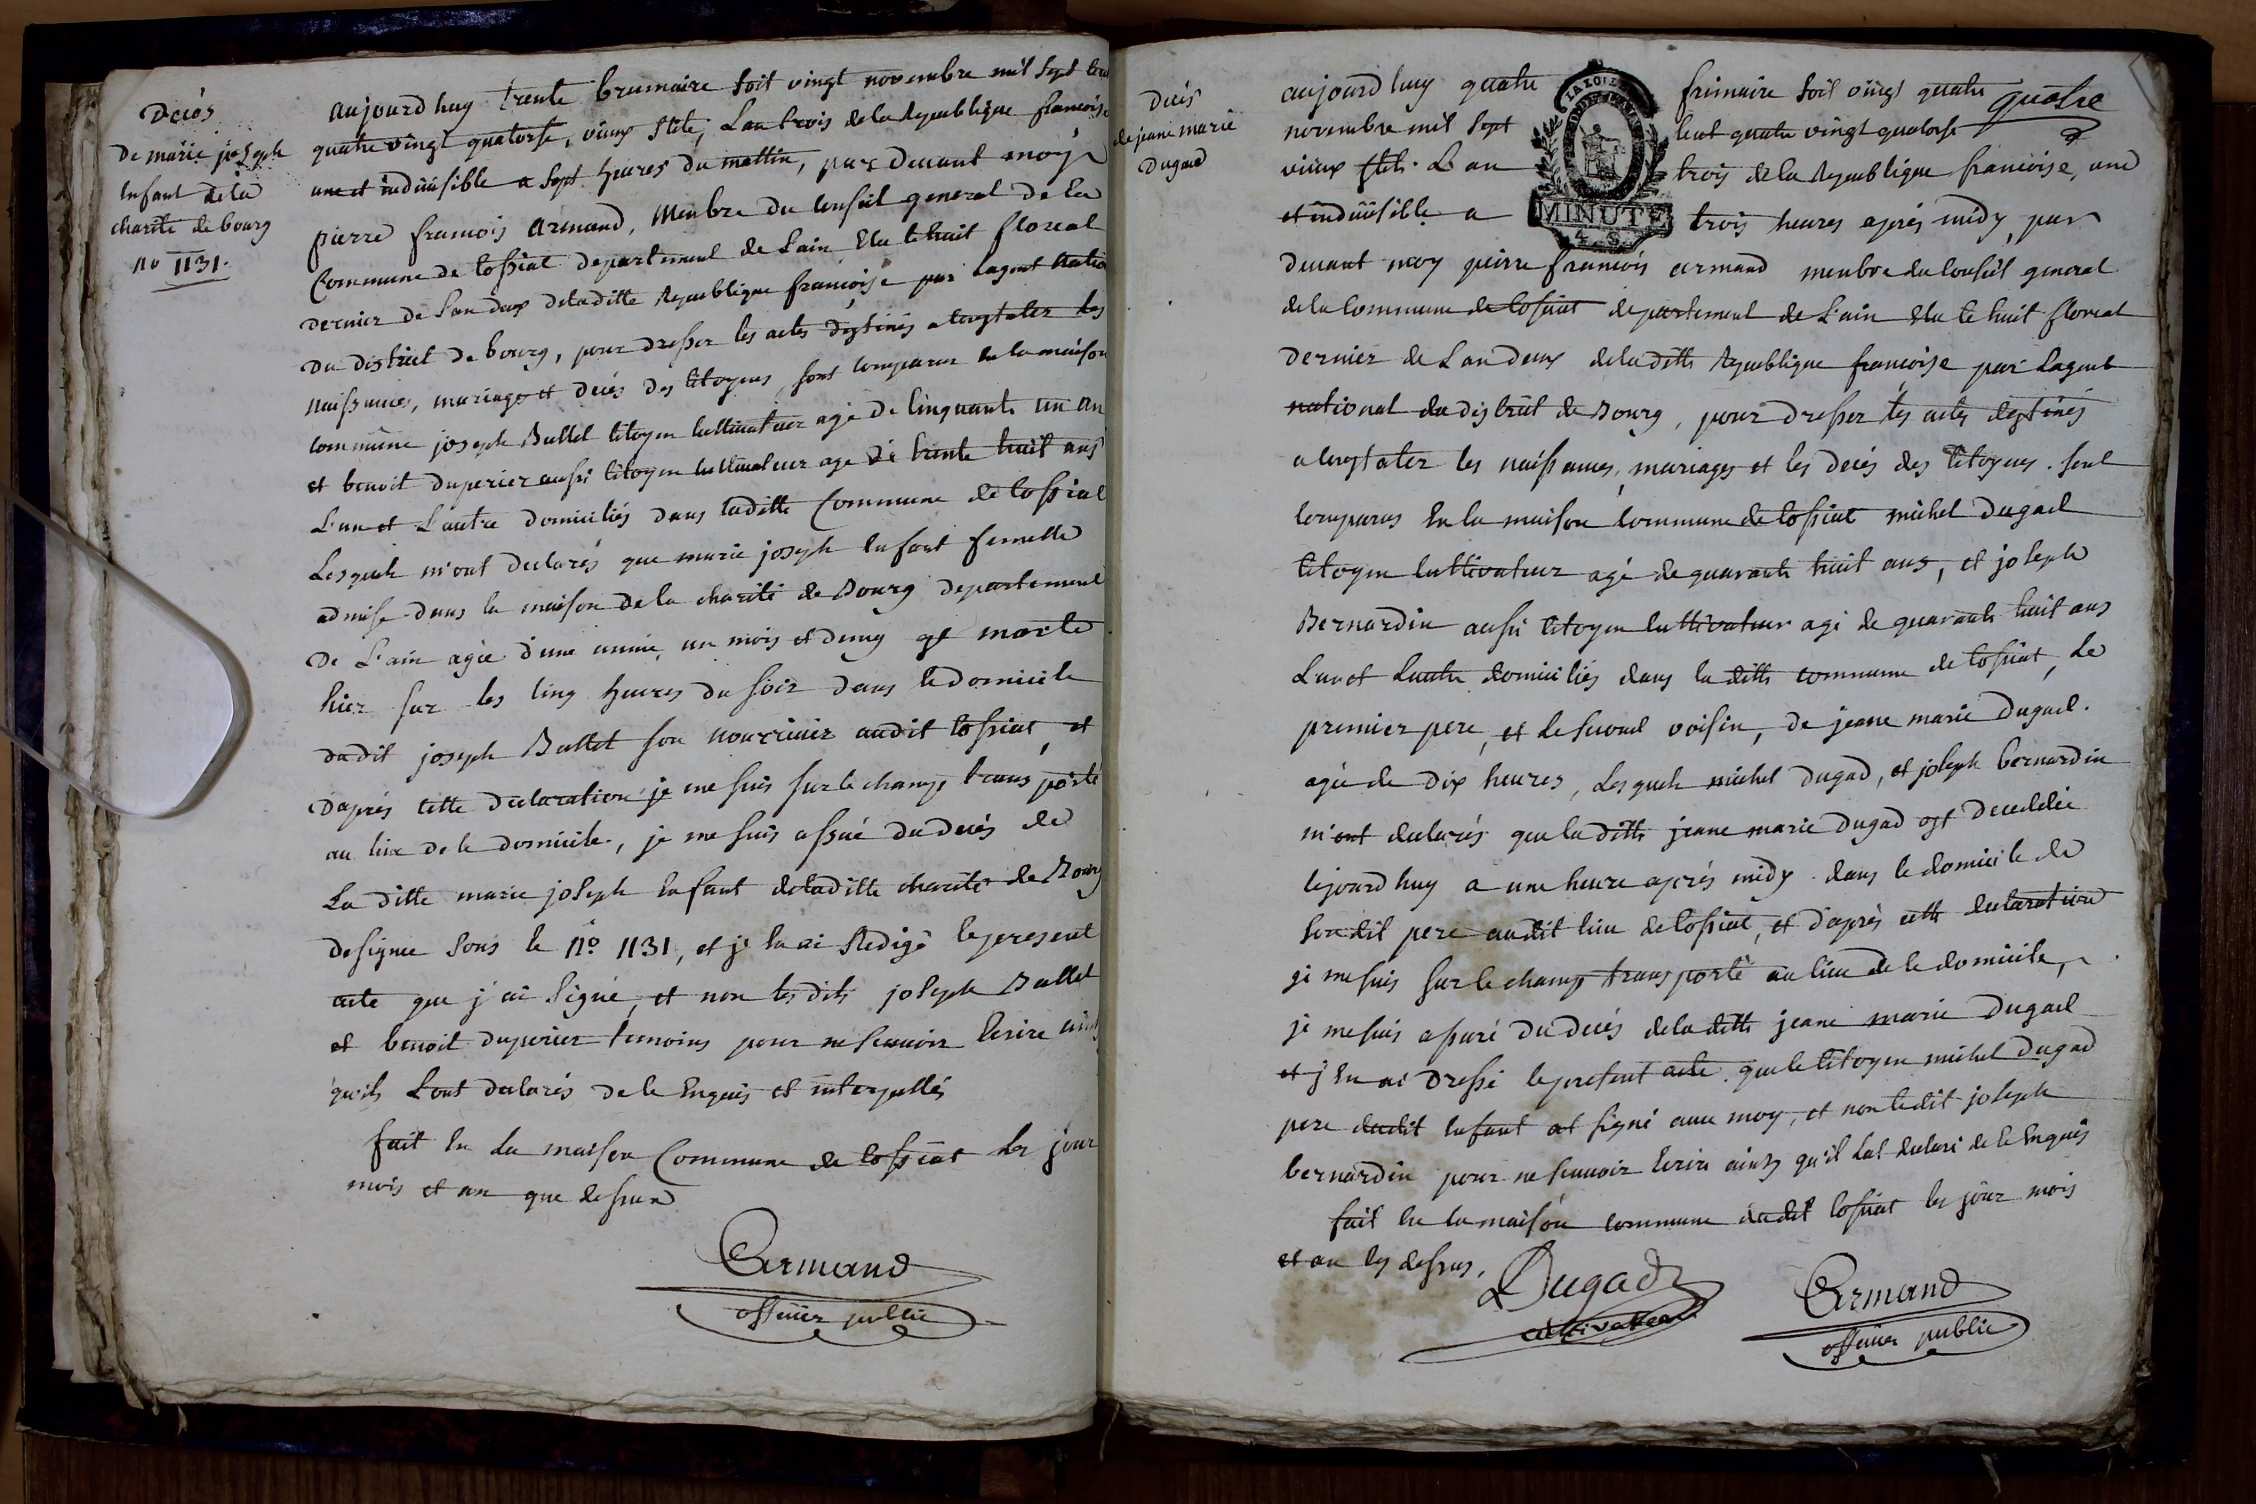 Décés
De marie joseph
Enfant de la
charité de bourg
no 1131.
aujourd huy trente brumaire soit vingt novembre mil sept cent
quatre vingt quatorse, vieux stile, L'an trois de la Republique francoise
une et indivisible a sept heures du mattin, par devant moy
pierre francois armand, membre du conseil general de la
Commune de Cossiat departement de L'ain Elu le huit floreal
dernier de L'an deux de laditte Republique francoise par L'agent natio
du district de bourg, pour dresser les actes destinés a constater les
naissances, mariages et decés des citoyens, sont comparus en la maison
commune joseph Bullet citoyen cultivateur agé de cinquante un an
et benoit duperier aussi citoyen cultivateur age de trente huit ans
L'un et L'autre domiciliés dans laditte Commune de Cossiat
Lesquels m'ont declarés que marie joseph enfant femelle
admise dans la maison de la charité de Bourg departement
de L'ain agée d'une année, un mois et demy est morte
hier sur les cinq heures du soir dans le domicile
dudit joseph Bullet son nourricier audit Cossiat, et
d'aprés cette declaration je me suis sur le champ transporté
au lieu de ce domicile, je me suis assuré du decés de
La ditte marie joseph enfant de laditte charité de Bourg
designee sous le no 1131, et j'en ai Redigé le present
acte que j'ai signé, et non les dits joseph Bullet
et benoit duperier temoins pour ne scavoir Ecrire ains
qu'ils L'ont declarés de ce Enquis et interpellés
fait en La maison Commune de Cossiat Les jour
mois et an que dessus
Armand
officier public
Decés
de jeane marie
Dugad
quatre
aujourd huy quatre frimaire soit vingt quatre
novembre mil sept cent quatre vingt quatorse
vieux stile. L'an trois de la Republique francoise, une
et indivisible a trois heures aprés midy, par
LA LOI
MINUTE
4. S.
devant moy pierre francois armand membre du conseil general
de la Commune de Cossiat departement de L'ain Elu le huit floreal
dernier de L'an deux de laditte Republique francoise par L'agent
national du district de Bourg, pour dresser les actes destinés
a constater les naissances, mariages et les decés des citoyens. sont
comparus En la maison commune de Cossiat michel Dugad
citoyen cultivateur agé de quarante huit ans, et joseph
Bernardin aussi citoyen cultivateur agé de quarante huit ans
L'un et L'autre domiciliés dans la ditte commune de Cossiat, Le
premier pere, et le second voisin, de jeane marie Dugad.
agée de dix heures, Lesquels michel Dugad, et joseph bernardin
m'ont declarés que la ditte jeane marie Dugad est decedée
cejourd huy a une heure aprés midy dans le domicile de
sondit pere audit lieu de Cossiat, et d'aprés cette declaration
je me suis sur le champ transporté au lieu de ce domicile,
je me suis assuré du decés de la ditte jeane marie Dugad
et j'En ai dressé le present acte que le citoyen michel Dugad
pere dudit enfant at signé avec moy, et non ledit joseph
bernardin pour ne scavoir Ecrire ainsy qu'il L'at declaré de ce Enquis
fait En la maison commune dudit Cossiat les jour mois
et an cy dessus.
Dugad
cultivateur
Armand
officier public